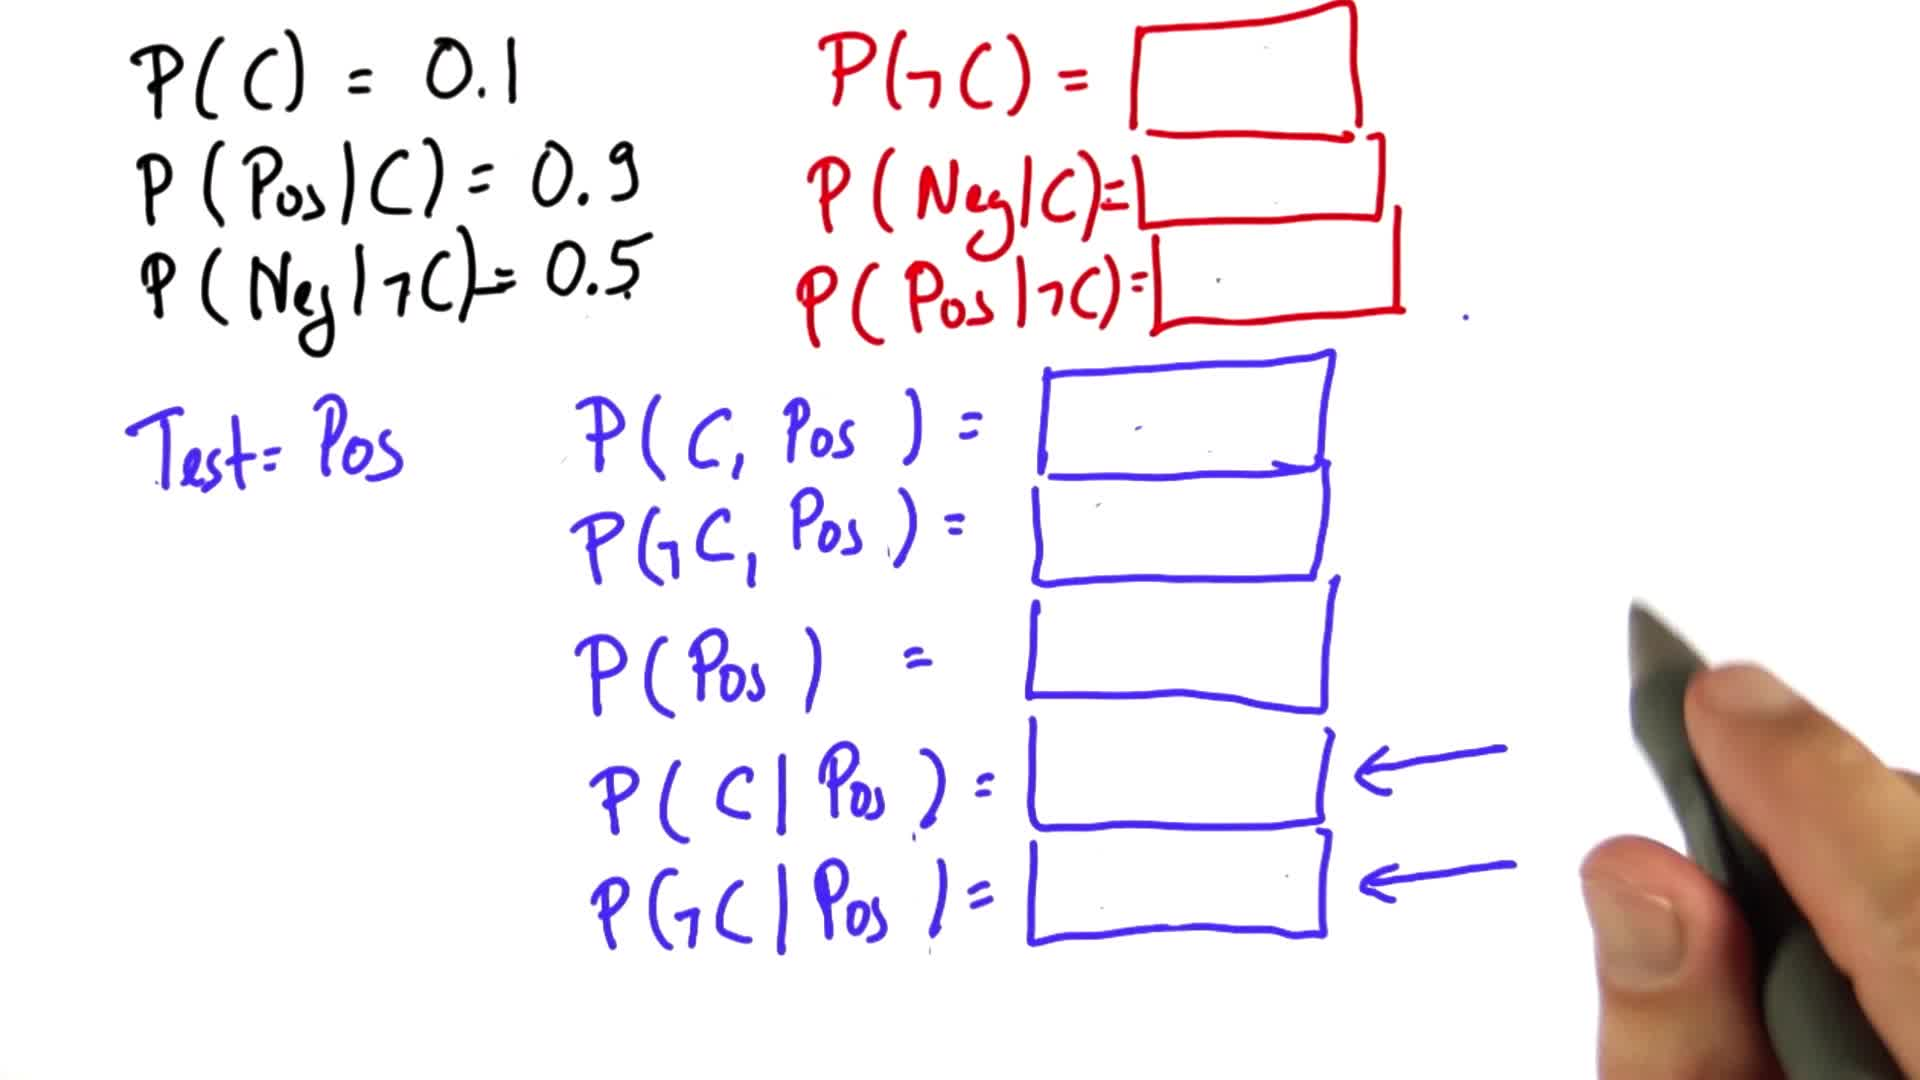 P(C) = 0.1
P(Pos|C) = 0.9
P(Neg|¬C) = 0.5
P(¬C) =
P(Neg|C) =
P(Pos|¬C) =
Test = Pos
P(C, Pos) =
P(¬C, Pos) =
P(Pos) =
P(C|Pos) =
P(¬C|Pos) =